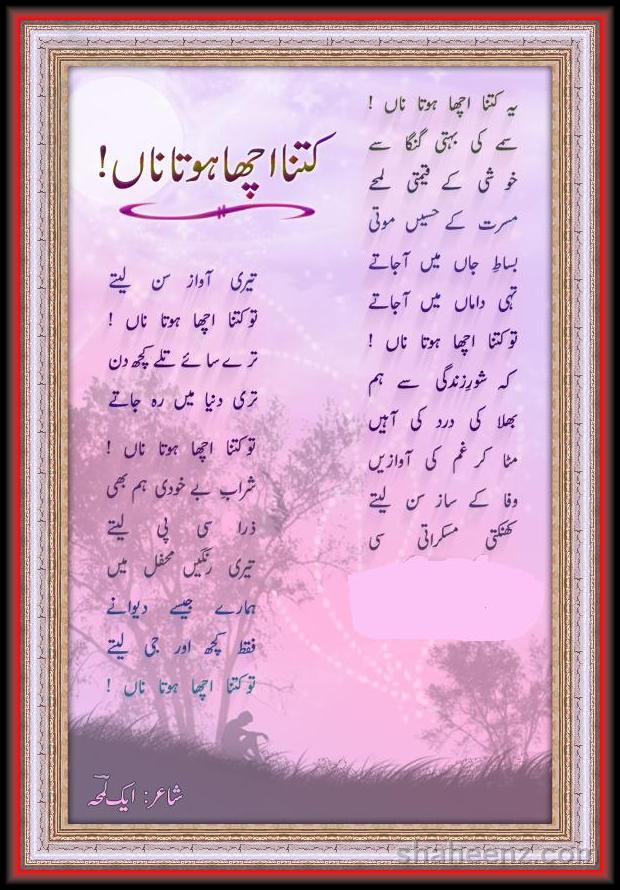 کتنا اچھا ہوتا ناں!
یہ کتنا اچھا ہوتا ناں !
سمے کی بہتی گنگا سے
خوشی کے قیمتی لمحے
مسرت کے حسیں موتی
بساطِ جاں میں آ جاتے
تہی داماں میں آ جاتے
تو کتنا اچھا ہوتا ناں !
کہ شورِ زندگی سے ہم
بھلا کی درد کی آہیں
مٹا کر غم کی آوازیں
وفا کے ساز سن لیتے
کھنکتی مسکراتی سی
تیری آواز سن لیتے
تو کتنا اچھا ہوتا ناں !
ترے سائے تلے کچھ دن
تری دنیا میں رہ جاتے
تو کتنا اچھا ہوتا ناں !
شراب بے خودی ہم بھی
ذرا سی پی لیتے
تیری رنگیں محفل میں
ہمارے جیسے دیوانے
فقط کچھ اور جی لیتے
تو کتنا اچھا ہوتا ناں !
شاعر: ایک لمحہ
shaheenz.com